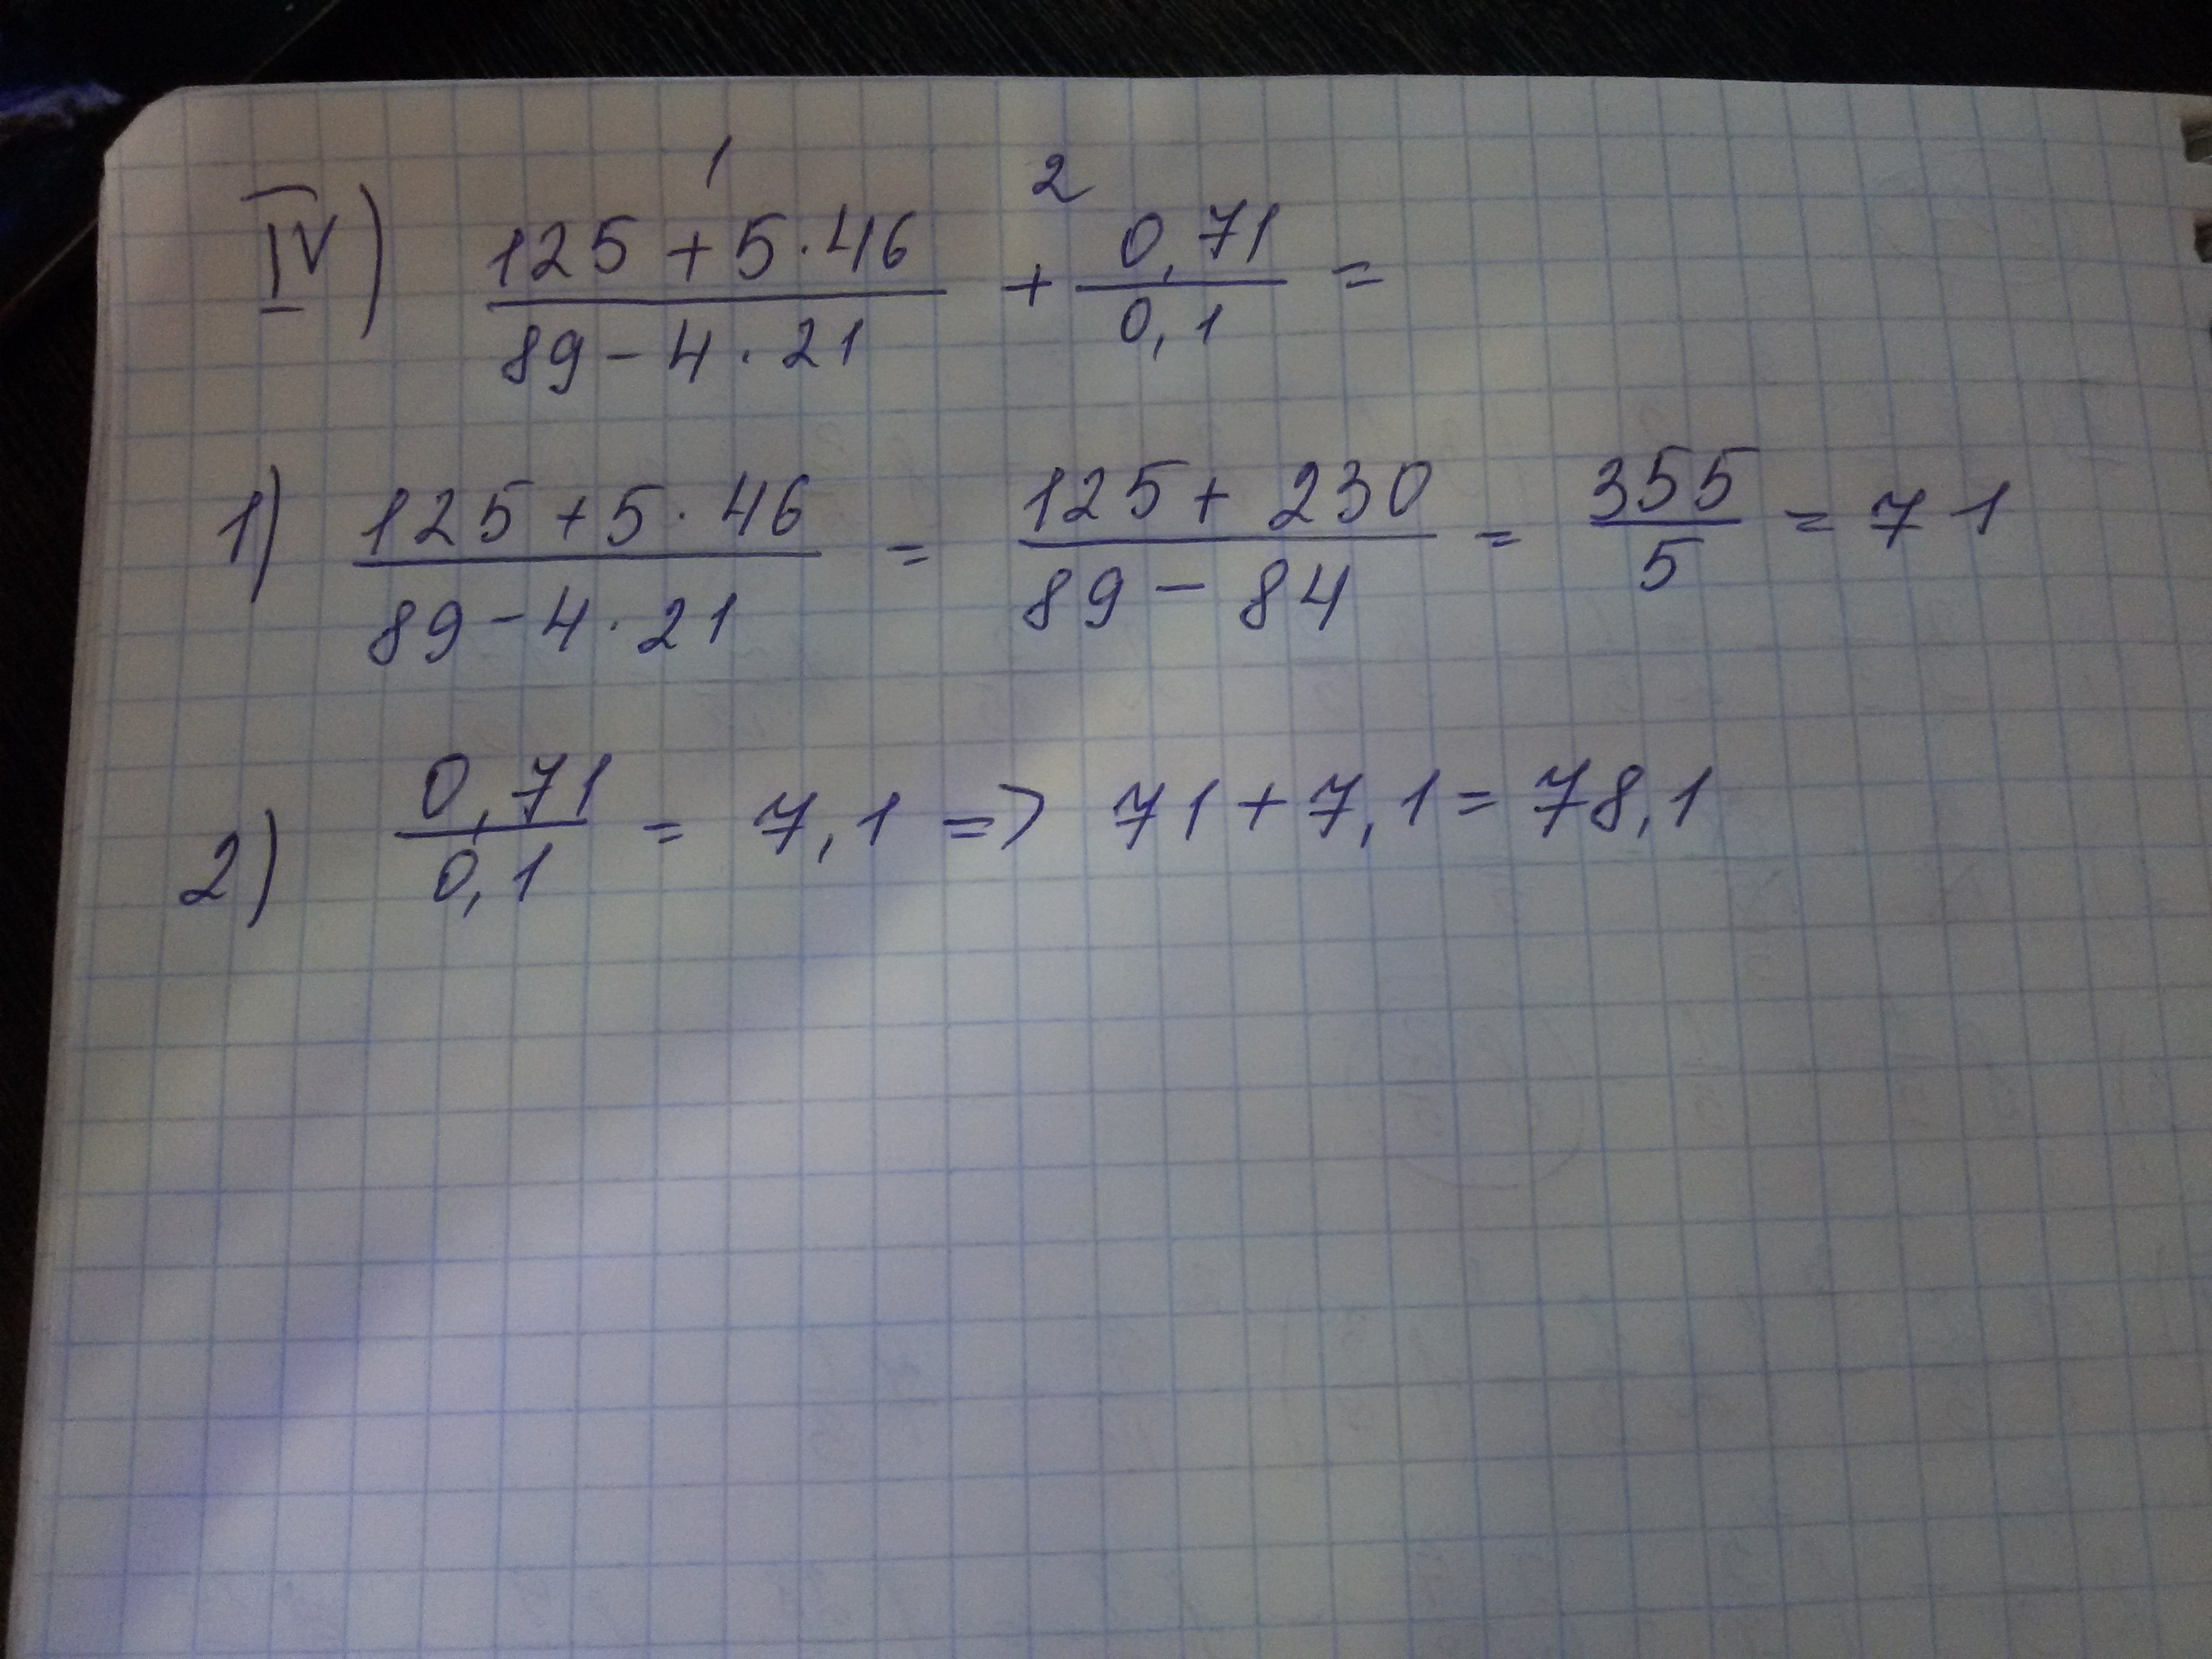 IV) (125 + 5 · 46)/(89 - 4 · 21) + (0,71)/(0,1) =
1 2
1) (125 + 5 · 46)/(89 - 4 · 21) = (125 + 230)/(89 - 84) = 355/5 = 71
2) 0,71/0,1 = 7,1 => 71 + 7,1 = 78,1